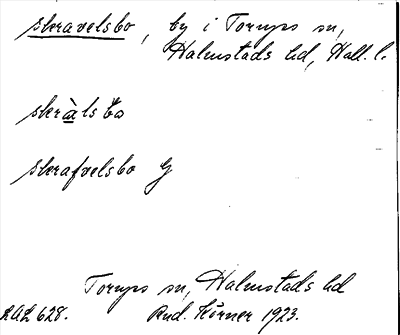 skravelsbo, by i Torups sn,
Halmstads hd, Hall. l.
skràls bo
skrafvelsbo G
Torups sn, Halmstads hd
LAL 628. Rud. Körner 1923.